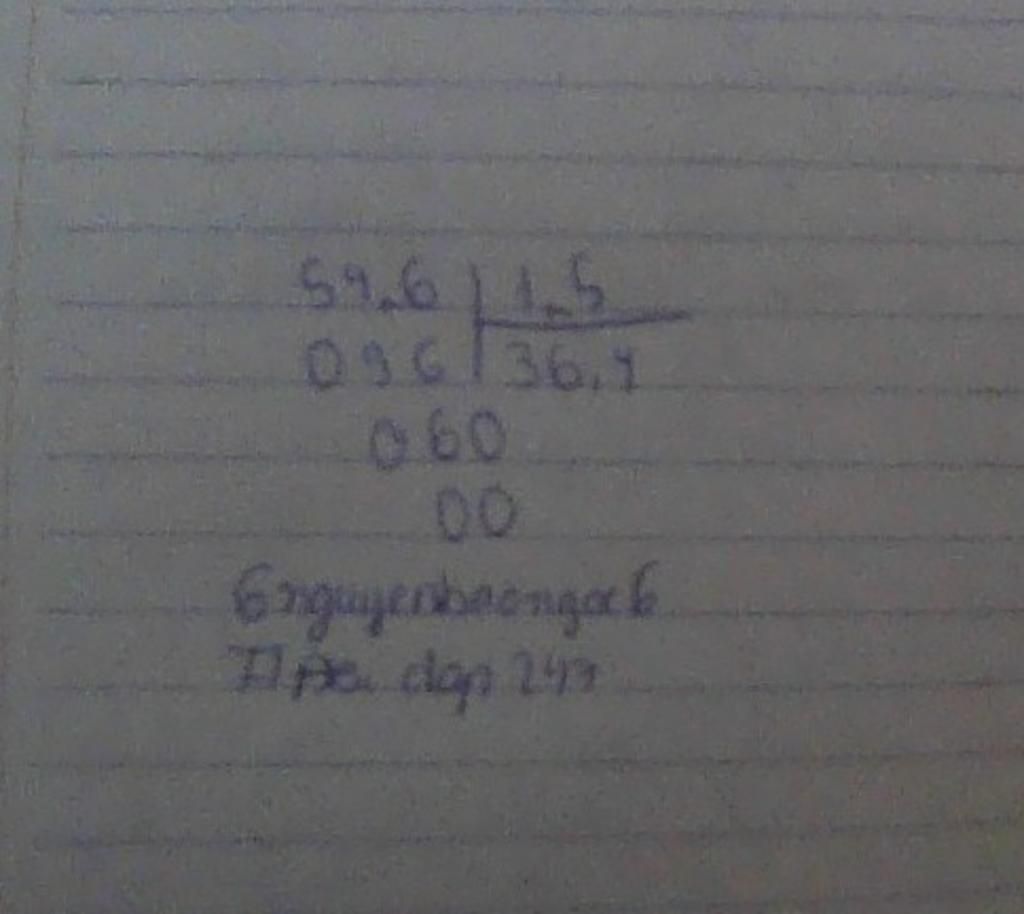 54,6 | 1,5
096 | 36,4
060
00
6nguyenbaongoc6
II Hỏi đáp 247